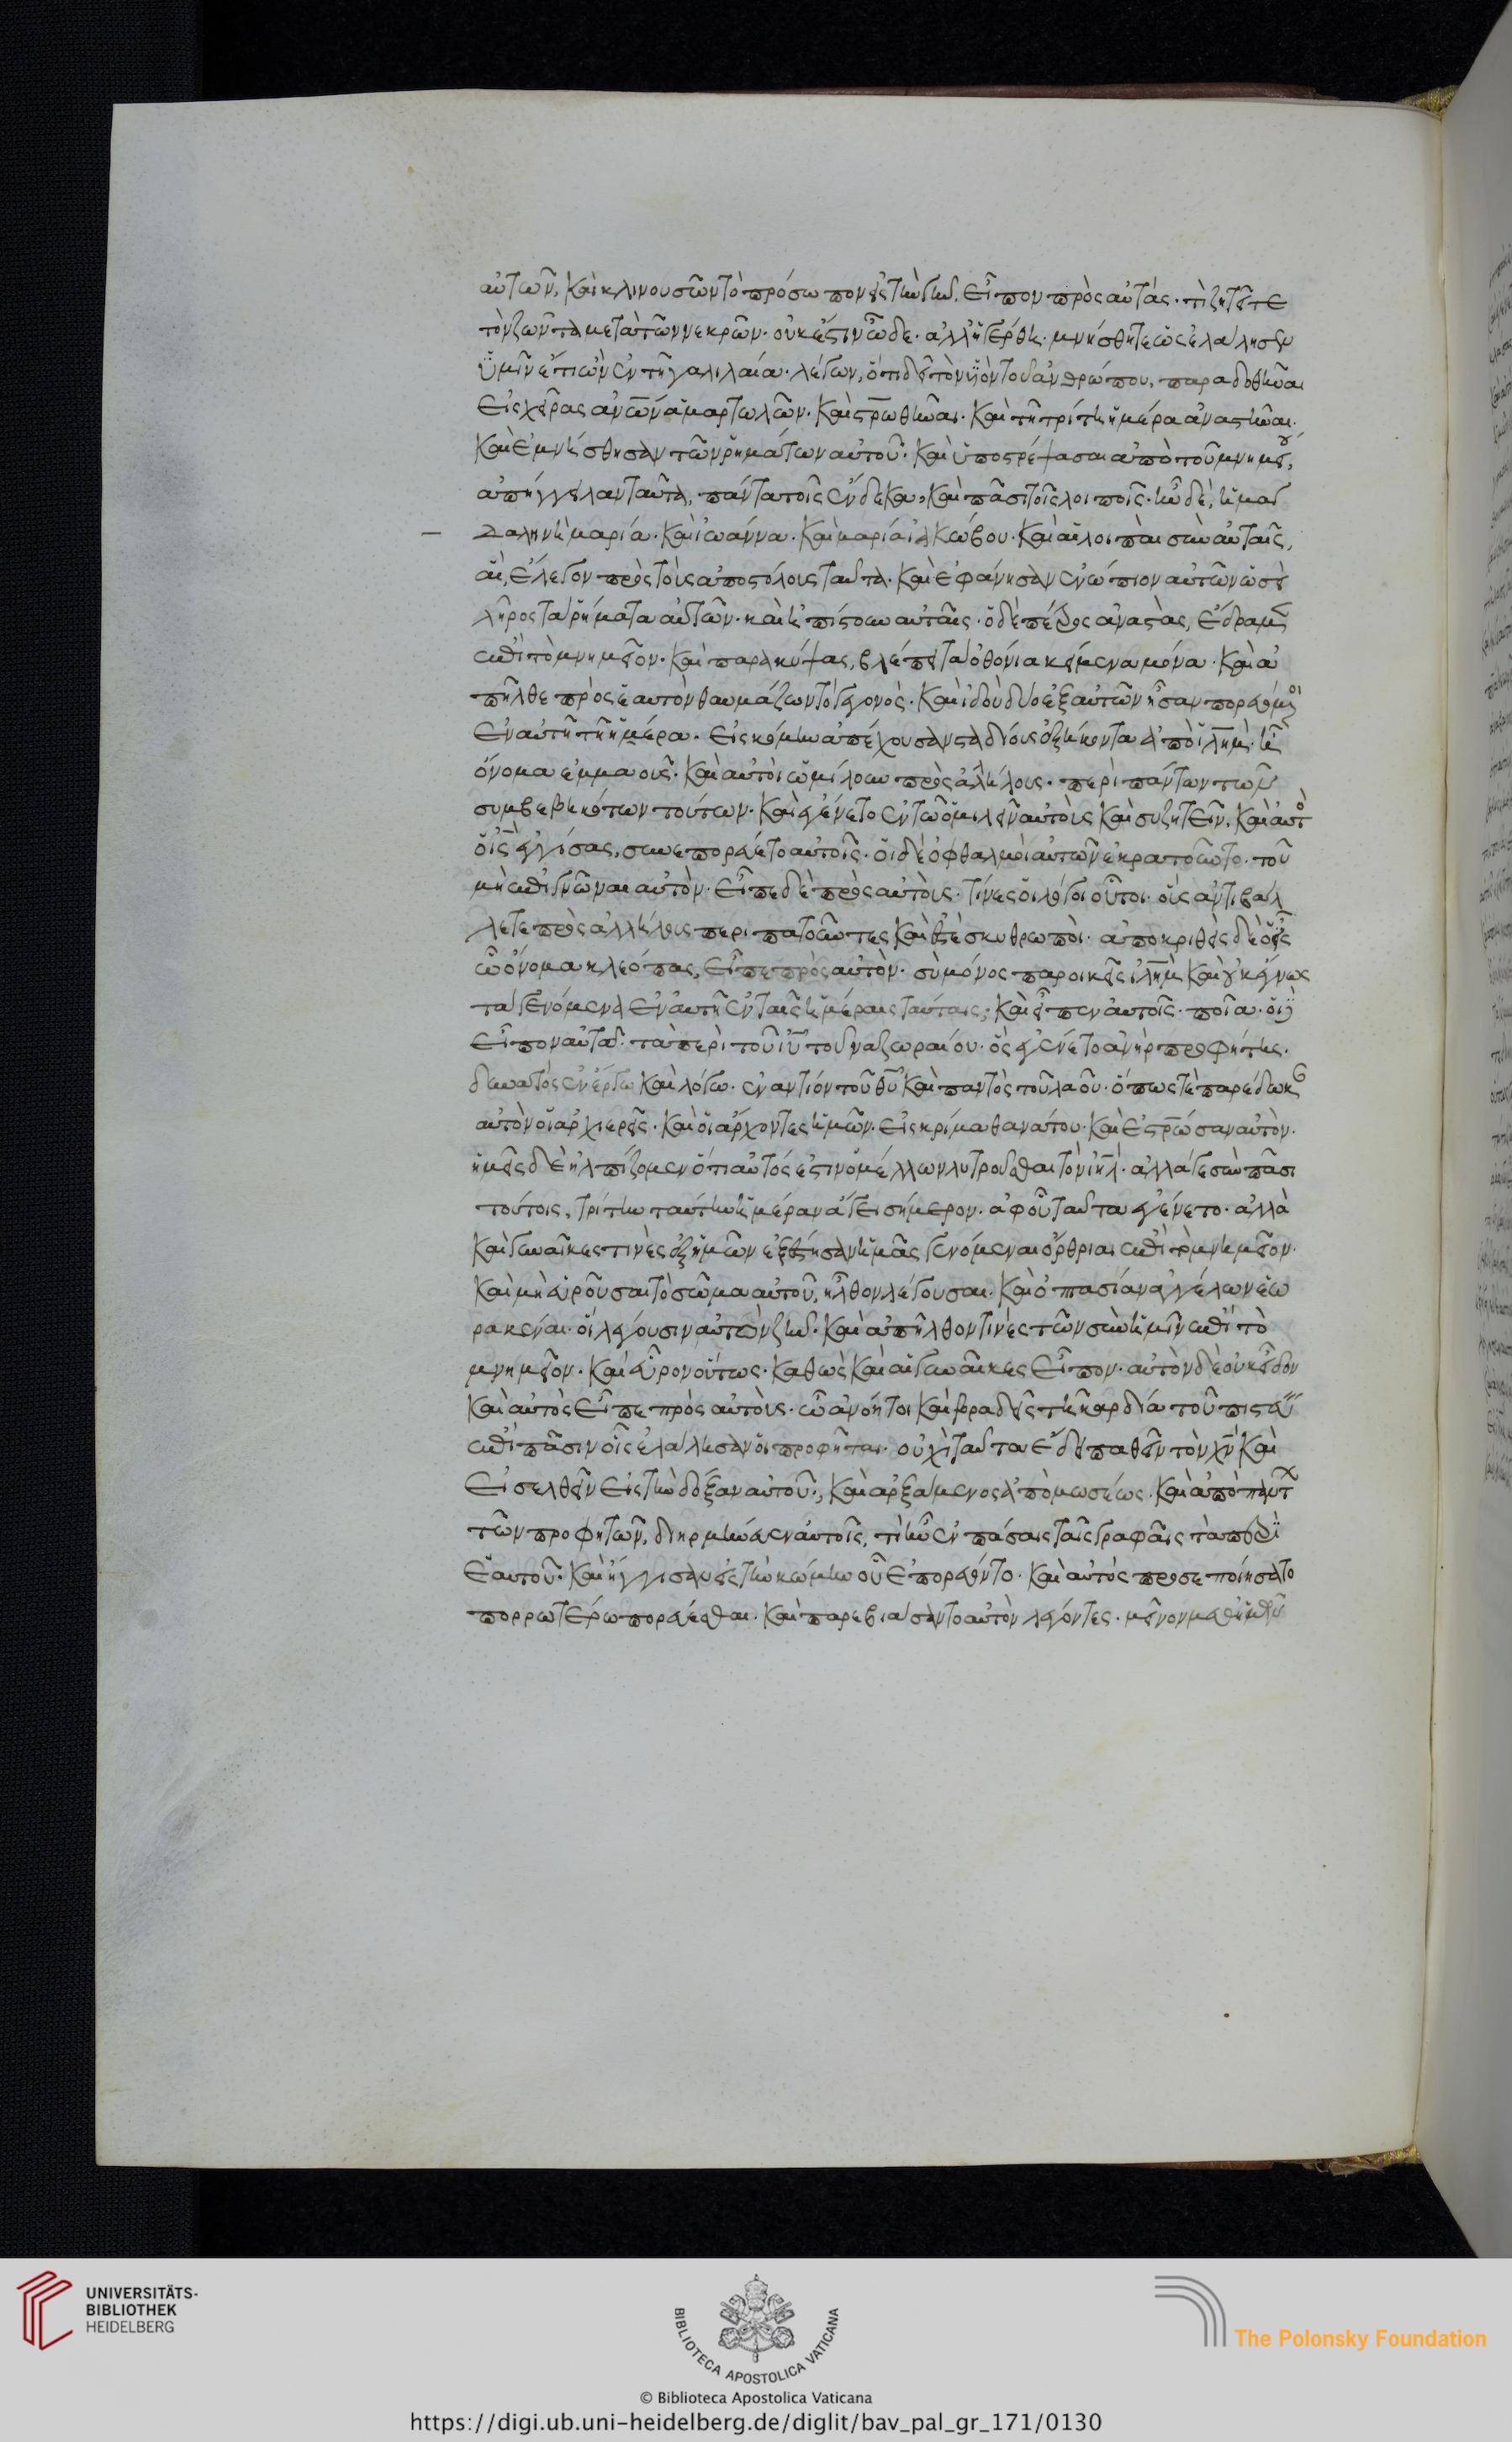 αὐτῶν, καὶ κλινουσῶν τὸ πρόσωπον εἰς τὴν γῆν. εἶπον πρὸς αὐτάς· τί ζητεῖτε
τὸν ζῶντα μετὰ τῶν νεκρῶν· οὐκ ἔστιν ὧδε· ἀλλ' ἠγέρθη· μνήσθητε ὡς ἐλάλησεν
ὑμῖν ἔτι ὢν ἐν τῇ γαλιλαία· λέγων, ὅτι δεῖ τὸν υἱὸν τοῦ ἀνθρώπου, παραδοθῆναι
εἰς χεῖρας ἀνων ἁμαρτωλῶν· καὶ στρωθῆναι· καὶ τῇ τρίτη ἡμέρα ἀναστῆναι·
καὶ ἐμνήσθησαν τῶν ῥημάτων αὐτοῦ· καὶ ὑποστρέψασαι ἀπὸ τοῦ μνημεί,
ἀπήγγειλαν ταῦτα, πάντα τοῖς ἕνδεκα, καὶ πᾶσι τοῖς λοιποῖς· ἦν δὲ, ἡ μαγ
δαληνὴ μαρία· καὶ ἰωάννα· καὶ μαρία ἰακώβου· καὶ αἱ λοιπαὶ σὺν αὐταῖς,
αἳ, ἔλεγον πρὸς τοὺς ἀποστόλους ταῦτα· καὶ ἐφάνησαν ἐνώπιον αὐτῶν ὡσεὶ
λῆρος τὰ ῥήματα αὐτῶν· καὶ ἠπίστουν αὐταῖς· ὁ δὲ πέτρος ἀναστὰς, ἔδραμεν
ἐπὶ τὸ μνημεῖον· καὶ παρακύψας, βλέπει τὰ ὀθόνια κείμενα μόνα· καὶ ἀ
πῆλθε πρὸς ἑαυτὸν θαυμάζων τὸ γεγονός· καὶ ἰδοὺ δύο ἐξ αὐτῶν ἦσαν πορευόμενοι
ἐν αὐτῇ τῇ ἡμέρα· εἰς κώμην ἀπέχουσαν σταδίους ἑξήκοντα ἀπὸ ἱλημ· ᾗ
ὄνομα ἐμμαούς· καὶ αὐτοὶ ὡμίλουν πρὸς ἀλλήλους· περὶ πάντων τῶν
συμβεβηκότων τούτων· καὶ ἐγένετο ἐν τῶ ὁμιλεῖν αὐτοὺς καὶ συζητεῖν, καὶ αὐτὸς
ὁ ις ἐγγίσας, συνεπορεύετο αὐτοῖς· οἱ δὲ ὀφθαλμοὶ αὐτῶν ἐκρατοῦντο· τοῦ
μὴ ἐπιγνῶναι αὐτὸν· εἶπε δὲ πρὸς αὐτούς· τίνες οἱ λόγοι οὗτοι· οὓς ἀντιβάλ
λετε πρὸς ἀλλήλους περιπατοῦντες καὶ ἐστὲ σκυθρωποί· ἀποκριθεὶς δὲ ὁ εἷς
ὧ ὄνομα κλεόπας, εἶπε πρὸς αὐτὸν· σὺ μόνος παροικεῖς ἱλημ καὶ οὐκ ἔγνως
τὰ γενόμενα ἐν αὐτῇ ἐν ταῖς ἡμέραις ταύταις; καὶ εἶπεν αὐτοῖς· ποῖα· οἱ δὲ
εἶπον αὐτῶ· τὰ περὶ τοῦ ιυ τοῦ ναζωραίου· ὃς ἐγένετο ἀνὴρ προφήτης·
δυνατὸς ἐν ἔργω καὶ λόγω· ἐναντίον τοῦ θυ καὶ παντὸς τοῦ λαοῦ· ὅπως τὲ παρέδωκαν
αὐτὸν οἱ ἀρχιερεῖς· καὶ οἱ ἄρχοντες ἡμῶν· εἰς κρίμα θανάτου· καὶ ἐστρωσαν αὐτὸν·
ἡμεῖς δὲ ἠλπίζομεν ὅτι αὐτός ἐστιν ὁ μέλλων λυτροῦσθαι τὸν ιηλ· ἀλλάγε σὺν πᾶσι
τούτοις, τρίτην ταύτην ἡμέραν ἄγει σήμερον· ἀφ' οὗ ταῦτα ἐγένετο· ἀλλὰ
καὶ γυναῖκες τινὲς ἐξ ἡμῶν ἐξέστησαν ἡμᾶς γενόμεναι ὄρθριαι ἐπὶ τὸ μνημεῖον·
καὶ μὴ εὑροῦσαι τὸ σῶμα αὐτοῦ, ἦλθον λέγουσαι· καὶ ὀπτασίαν ἀγγέλων ἑω
ρακέναι· οἳ λέγουσιν αὐτὸν ζῆν· καὶ ἀπῆλθον τινὲς τῶν σὺν ἡμῖν ἐπὶ τὸ
μνημεῖον· καὶ εὗρον οὕτως· καθὼς καὶ αἱ γυναῖκες εἶπον· αὐτὸν δὲ οὐκ εἶδον
καὶ αὐτὸς εἶπε πρὸς αὐτούς· ὦ ἀνόητοι καὶ βραδεῖς τῇ καρδία τοῦ πιστεύειν
ἐπὶ πᾶσιν οἷς ἐλάλησαν οἱ προφῆται· οὐχὶ ταῦτα ἔδει παθεῖν τὸν χν καὶ
εἰσελθεῖν εἰς τὴν δόξαν αὐτοῦ; καὶ ἀρξάμενος ἀπὸ μωσέως· καὶ ἀπὸ πάντων
τῶν προφητῶν, διηρμήνευεν αὐτοῖς, τί ἦν ἐν πάσαις ταῖς γραφαῖς τὰ περὶ
ἑαυτοῦ· καὶ ἤγγισαν εἰς τὴν κώμην οὗ ἐπορεύοντο· καὶ αὐτὸς προσεποιήσατο
πορρωτέρω πορεύεσθαι· καὶ παρεβιάσαντο αὐτὸν λέγοντες· μεῖνον μεθ' ἡμῶν
UNIVERSITÄTS-
BIBLIOTHEK
HEIDELBERG
BIBLIOTECA APOSTOLICA VATICANA
The Polonsky Foundation
© Biblioteca Apostolica Vaticana
https://digi.ub.uni-heidelberg.de/diglit/bav_pal_gr_171/0130